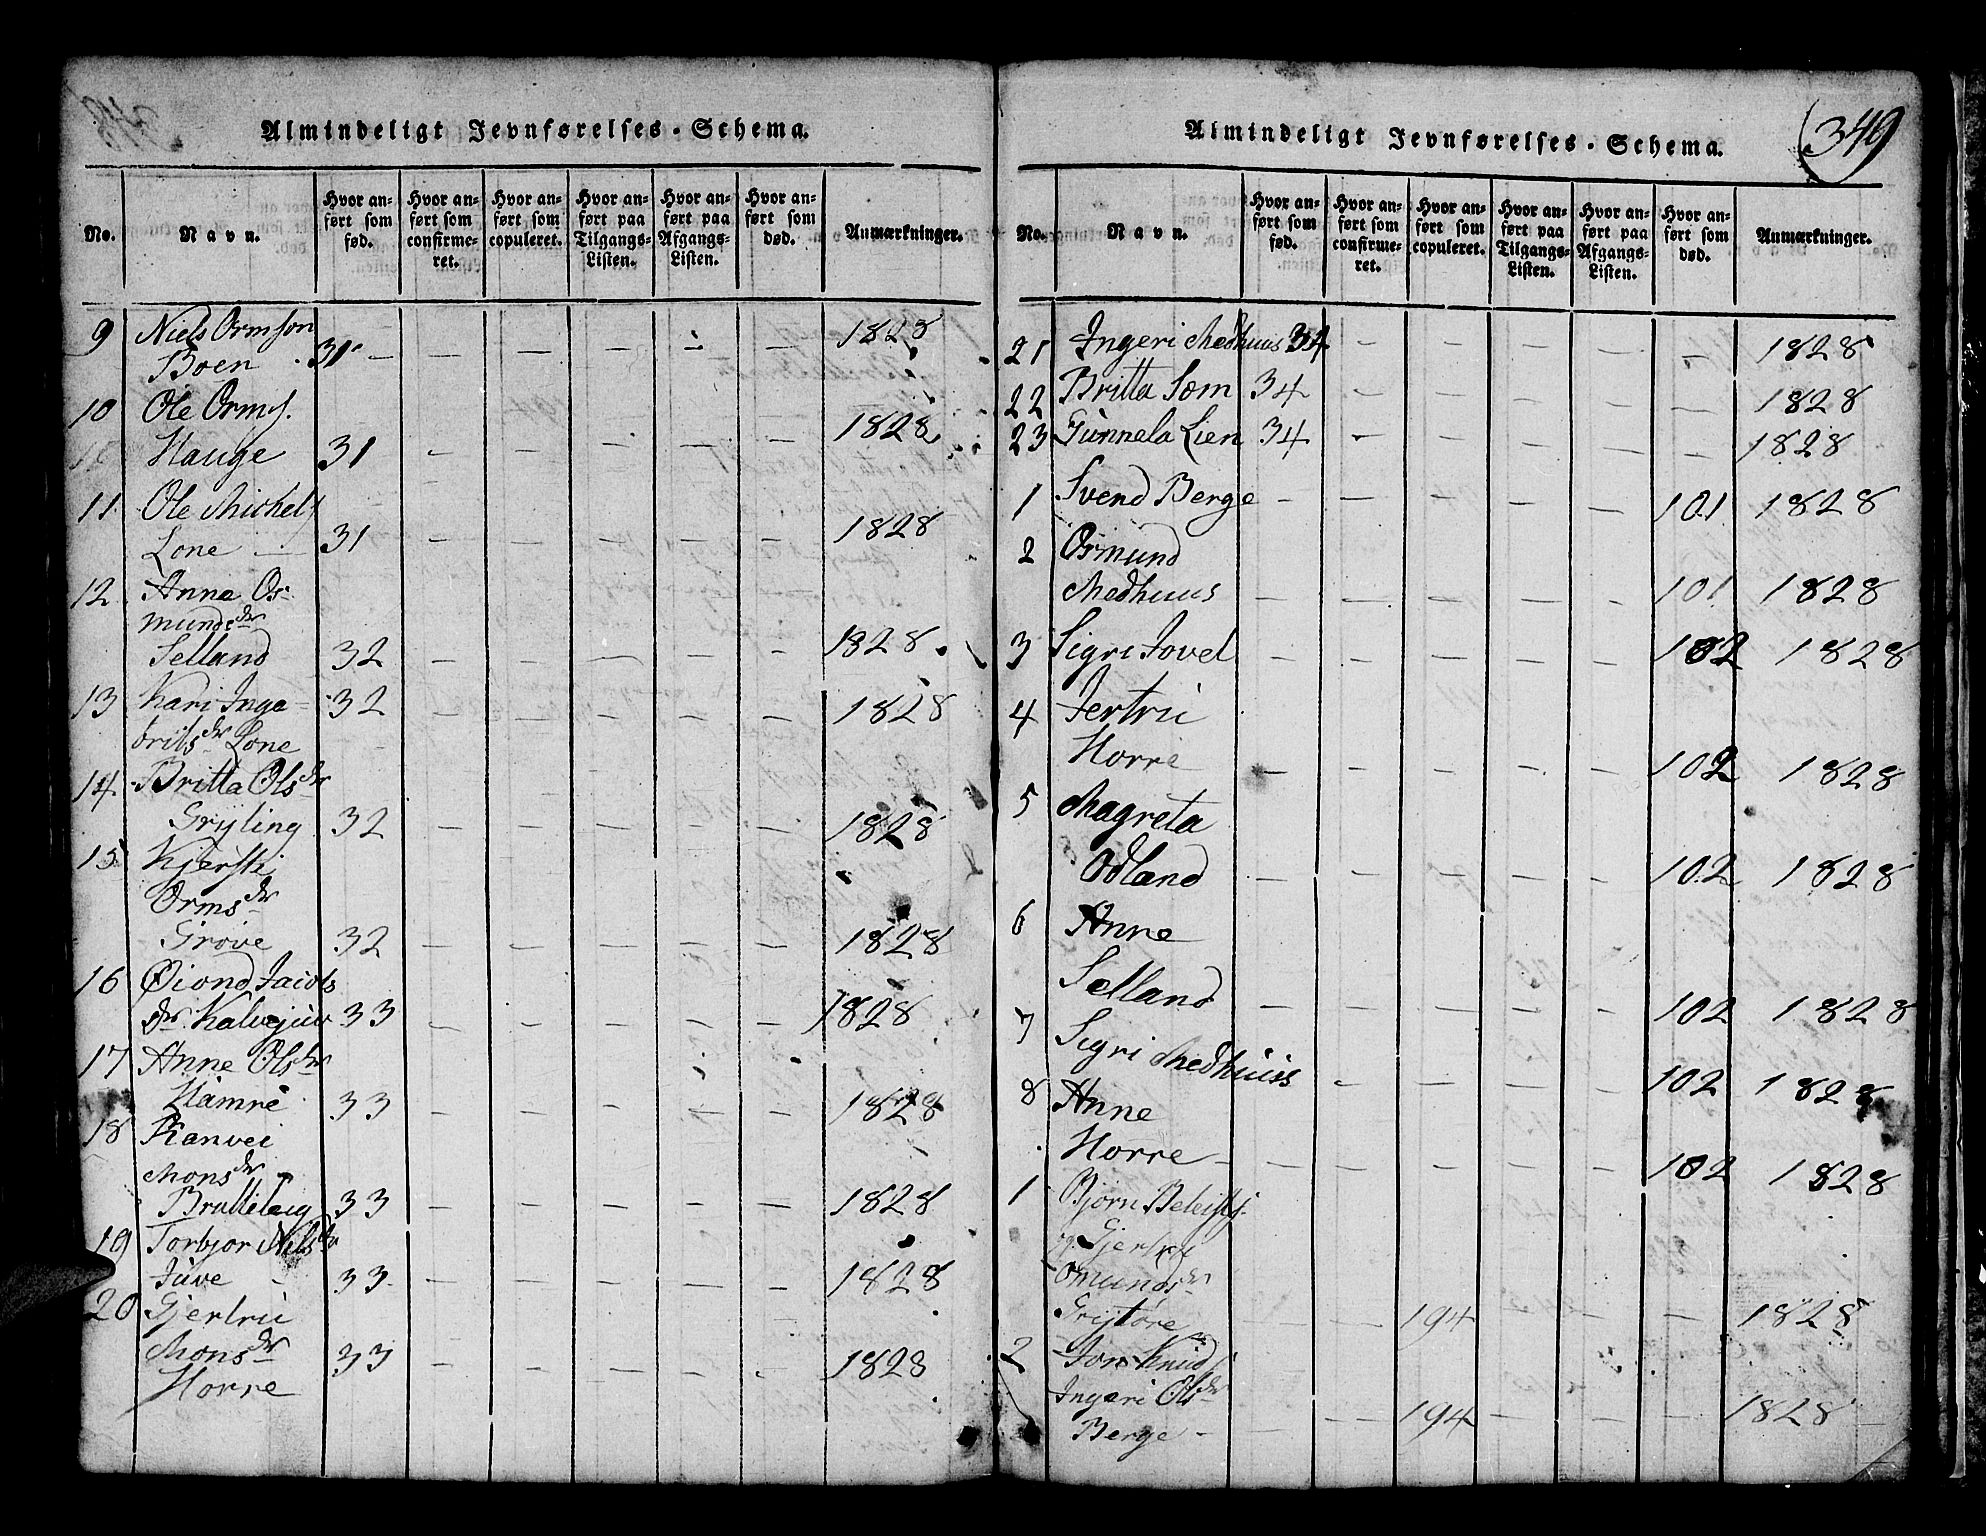 Almindeligt Jevnførelses-Schema.
No.
Navn.
Hvor anført som fød.
Hvor anført som confirmeret.
Hvor anført som copuleret.
Hvor anført paa Tilgangs-Listen.
Hvor anført paa Afgangs-Listen.
Hvor anført som død.
Anmærkninger.
9 Niels Ormson 1828
Boen . 31 - - - - - -
10 Ole Orms. 1828
Hauge 31 - - - - -
11. Ole Michels 1828
Lone - 31 - - - - - -
12 Anne Os-
munds dr
Selland 32 - - - - - - 1828
13 Kari Inge- 32 - - - - - - 1828
brits dr Lone
14 Britta Ols dr
Gryting 32 - - - - - - 1828
15 Kjersti
Orms dr
Grove 32 - - - - - - 1828
16 Øiond Jacobs
dr Kalvejuv 33 - - - - - - 1828
17 Anne Ols dr
Hamre 33 - - - - - - 1828
18 Ranvei
Mons dr
Bratteteig 33 - - - - - - 1828
19 Torbjor Nils dr
Juve - 33 - - - - - - 1828
20 Gjertru
Mons dr 33 - - - - - - 1828
Horre
Almindeligt Jevnførelses-Schema.
349
No.
Navn.
Hvor anført som fød.
Hvor anført som confirmeret.
Hvor anført som copuleret.
Hvor anført paa Tilgangs-Listen.
Hvor anført paa Afgangs-Listen.
Hvor anført som død.
Anmærkninger.
21 Ingeri Medhuus 34 - - - - - 1828
22 Britta Søm 34 - - - - - 1828
23 Gunnela Lien 34 - - - - - 1828
1 Svend Berge - - - - - 101 1828
2 Osmund
Medhuus - - - - - 101 1828
3 Sigri Jovel - - - - - 102 1828
4 Jertru
Horre - - - - - 102 1828
5 Magreta
Odland - - - - - 102 1828
6 Anne
Selland - - - - - 102 1828
7 Sigri Medhuus - - - - 102 1828
8 Anne
Horre - - - - - - 102 1828
1 Bjørn
Gjertru
Omunds dr
Grytøre - - 194 - - - 1828
2 Jon Knuds
Ingeri Ols dr
Berge - - - 194 - - - 1828